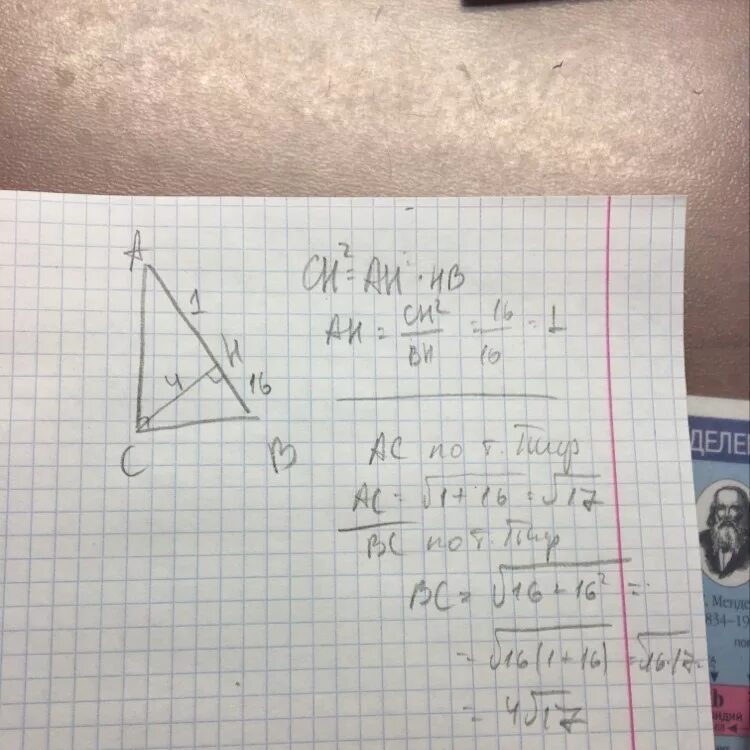 A
1
H
4
16
C
B
CH² = AH · HB
AH = CH²/BH = 16/16 = 1
AC по т. Пиф
AC = √1+16 = √17
BC по т. Пиф
BC = √16+16² =
= √16(1+16) = √16·17 =
= 4√17
ДЕЛЕЕ
. Менде
834–19
b